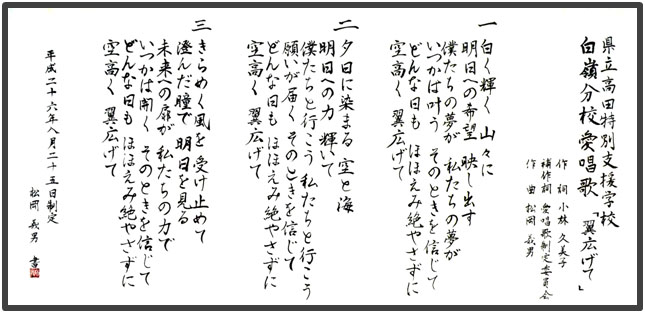 県立高田特別支援学校
白嶺分校愛唱歌「翼広げて」
作詞 小林久美子
補作詞 愛唱歌制定委員会
作曲 松岡義男
一 白く輝く 山々に
明日への希望 映し出す
僕たちの夢が 私たちの夢が
いつかは叶う そのときを信じて
どんな日も ほほえみ絶やさずに
空高く 翼広げて
二 夕日に染まる 空と海
明日への力 輝いて
僕たちと行こう 私たちと行こう
願いが届く そのときを信じて
どんな日も ほほえみ絶やさずに
空高く 翼広げて
三 きらめく風を 受け止めて
澄んだ瞳で 明日を見る
未来への扉が 私たちの力で
いつかは開く そのときを信じて
どんな日も ほほえみ絶やさずに
空高く 翼広げて
平成二十六年八月二十五日制定
松岡義男 書